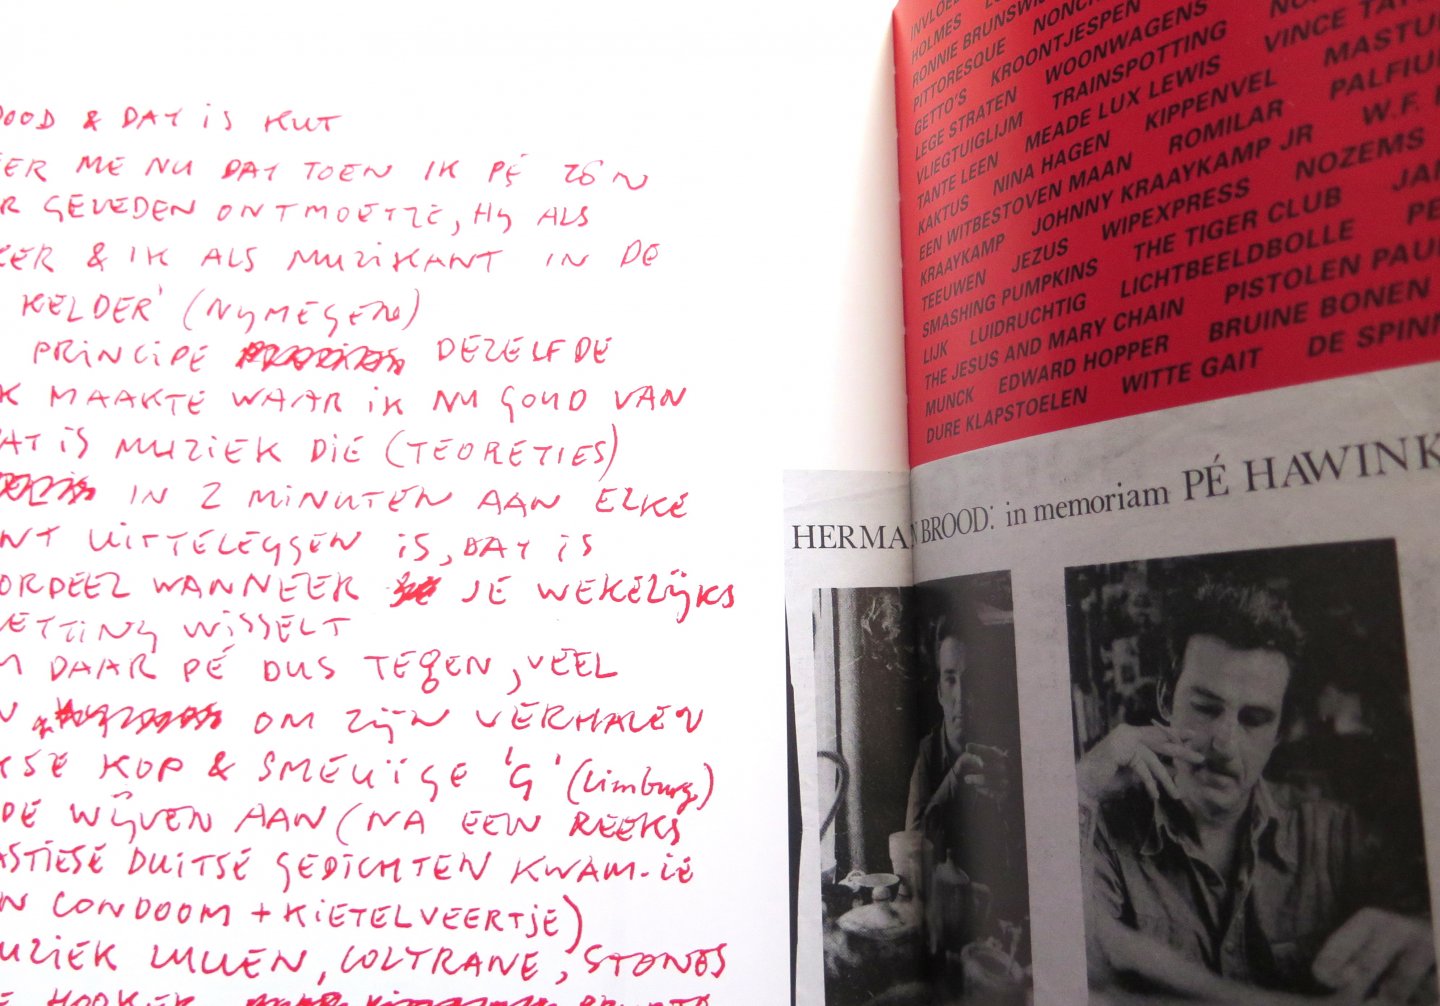 DOOD & DAT is KUT
ER ME NU DAT TOEN IK PÉ ZO'N
R GELEDEN ONTMOETTE, Hij ALS
ER & IK ALS MUZIKANT IN DE
KELDER' (NijMEGEN)
PRiNCiPE DEZELFDE
K MAAKTE WAAR iK NU GOUD VAN
AT iS MUZIEK DIE (TEORETIES)
IN 2 MiNUTEN AAN ELKE
NT UITTELEGGEN iS, DAT iS
ORDEEL WANNEER JE WEKELijKS
ETTiNG WiSSELT
M DAAR PÉ DUS TEGEN, VEEL
N OM ZijN VERHALEN
KSE KOP & SMEUÏGE 'G' (Limburg)
DE WijVEN AAN (NA EEN REEKS
ASTIESE DUITSE GEDICHTEN KWAM-iE
N CONDOOM + KiETELVEERTJE)
UZIEK LULLEN, COLTRANE, STONES
HOOKER
INVLOED
HOLMES
RONNIE BRUNSWI NONCH
PITTORESQUE KROONTJESPEN NO
GETTO'S WOONWAGENS VINCE TAY
LEGE STRATEN TRAINSPOTTING MASTU
VLIEGTUIGLIJM MEADE LUX LEWIS PALFIU
TANTE LEEN KIPPENVEL W.F.
KAKTUS NINA HAGEN ROMILAR
EEN WITBESTOVEN MAAN JOHNNY KRAAYKAMP JR NOZEMS
KRAAYKAMP JEZUS WIPEXPRESS JAN
TEEUWEN THE TIGER CLUB PE
SMASHING PUMPKINS LICHTBEELDBOLLE
LIJK LUIDRUCHTIG PISTOLEN PAU
THE JESUS AND MARY CHAIN BRUINE BONEN
MUNCK EDWARD HOPPER DE SPINN
DURE KLAPSTOELEN WITTE GAIT
HERMAN BROOD: in memoriam PÉ HAWINK